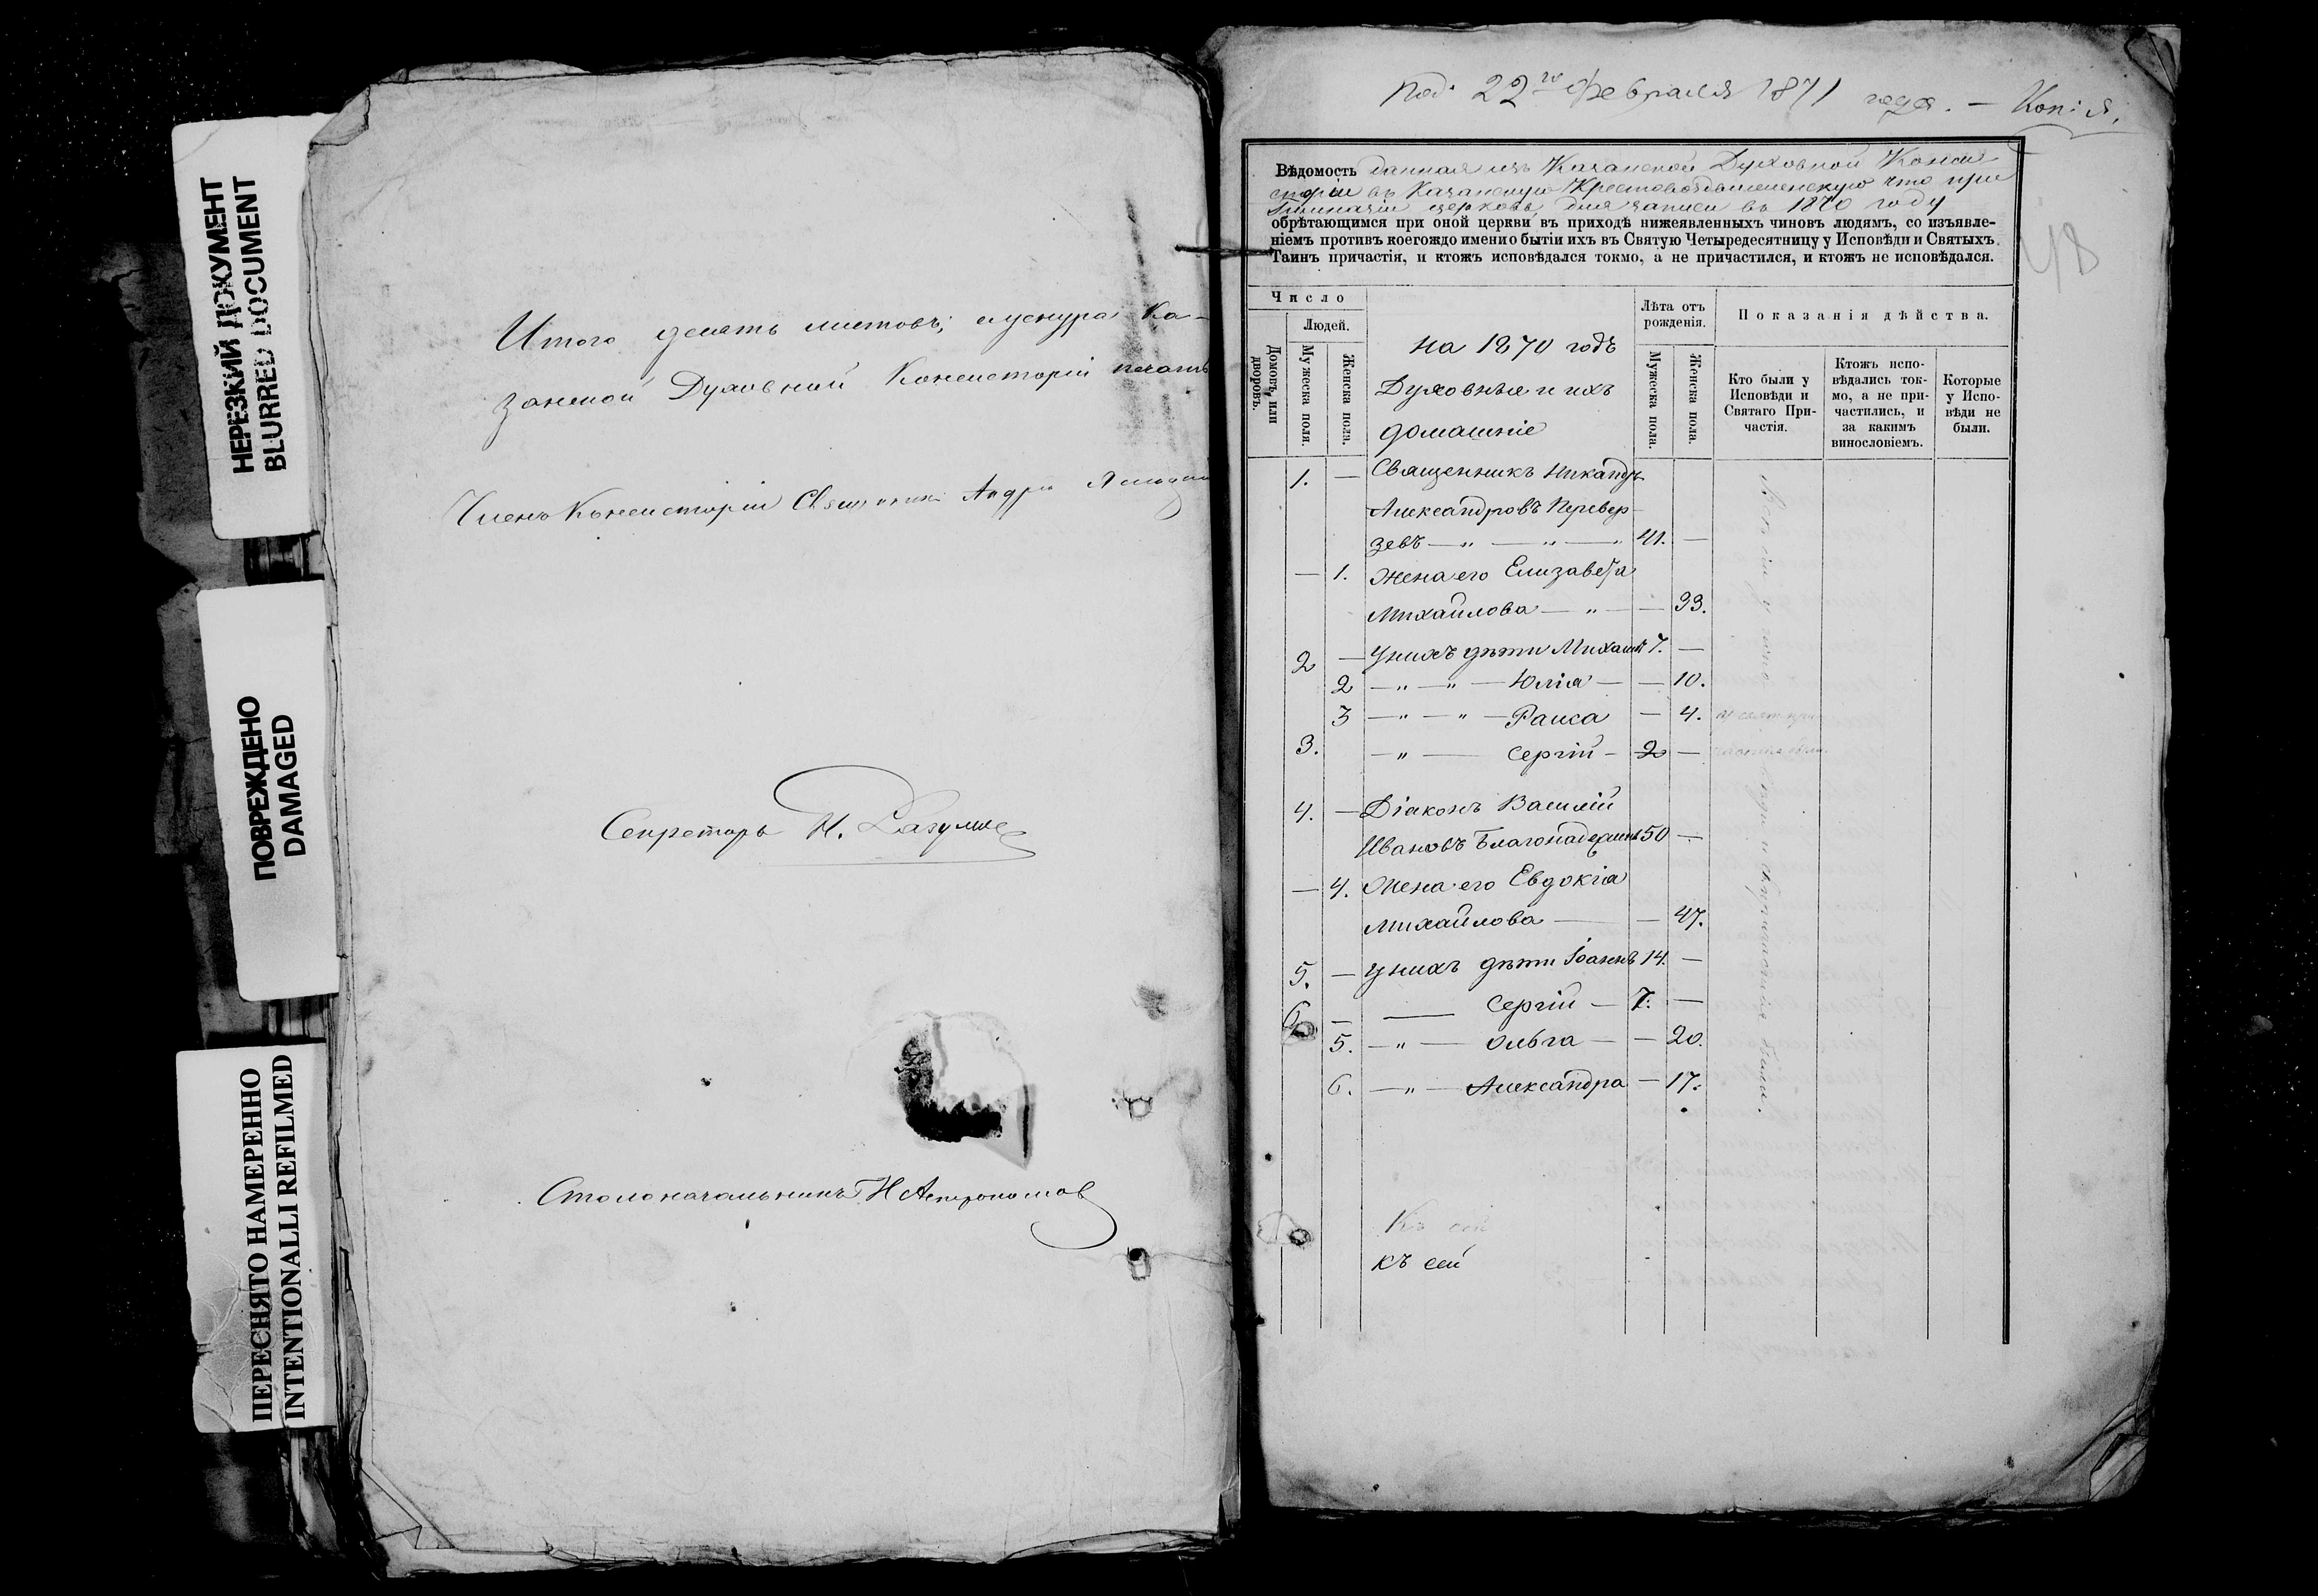 НЕРЕЗКИЙ ДОКУМЕНТ
BLURRED DOCUMENT
ПОВРЕЖДЕНО
DAMAGED
ПЕРЕСНЯТО НАМЕРЕННО
INTENTIONALLI REFILMED
Итого девять листовъ; скунура Ка-
занской Духовной Консисторіи печать
Членъ Консисторіи Священникъ Андрей
Секретарь Н. Разумов
Столоначальникъ Н Астрономов
Под. 22го Февраля 1871 года. — Копія.
48
Вѣдомость данная изъ Казанской Духовной Конси
сторіи въ Казанскую Крестовоздвиженскую что при
Гимназіи церковь, для записи въ 1870 году
обрѣтающимся при оной церкви въ приходѣ нижеявленныхъ чиновъ людямъ, со изъявле-
ніемъ противъ коегождо имени о бытіи ихъ въ Святую Четыредесятницу у Исповѣди и Святыхъ
Таинъ причастія, и ктожъ исповѣдался токмо, а не причастился, и ктожъ не исповѣдался.
Число
Домовъ, или дворовъ.
Людей.
Мужеска поля.
Женска пола.
на 1870 годъ
Духовные и ихъ
домашніе
Лѣта отъ рожденія.
Мужеска пола.
Женска пола.
Показанія дѣйства.
Кто были у Исповѣди и Святаго При-частія.
Ктожъ испо-вѣдались ток-мо, а не при-частились, и за какимъ винословіемъ.
Которые у Испо-вѣди не были.
1. — Священникъ Никандръ
Александровъ Перевер-
зевъ — „ — „ — „ 41. —
— 1. Жена его Елизавета
Михайлова — „ — — 33.
2 — У нихъ дѣти Михаилъ 7. —
2 — „ — „ — Юлія — — 10.
3 — „ — „ — Раиса — 4.
3. — „ — Сергій — 2 —
4. — Діаконъ Василій
Ивановъ Благонадеждинъ 50 —
— 4. Жена его Евдокія
Михайлова — — 47.
5. — У нихъ дѣти Іоаннъ 14. —
6 — — Сергій — 7. —
5. — „ — Ольга — — 20.
6. — „ — Александра — 17.
Къ сей
къ сей